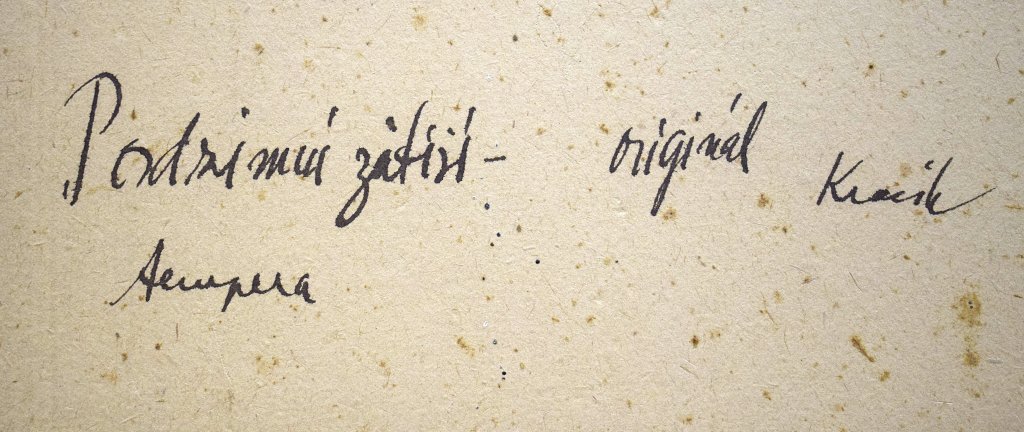 „Podzimní zátiší - originál Kracik
tempera